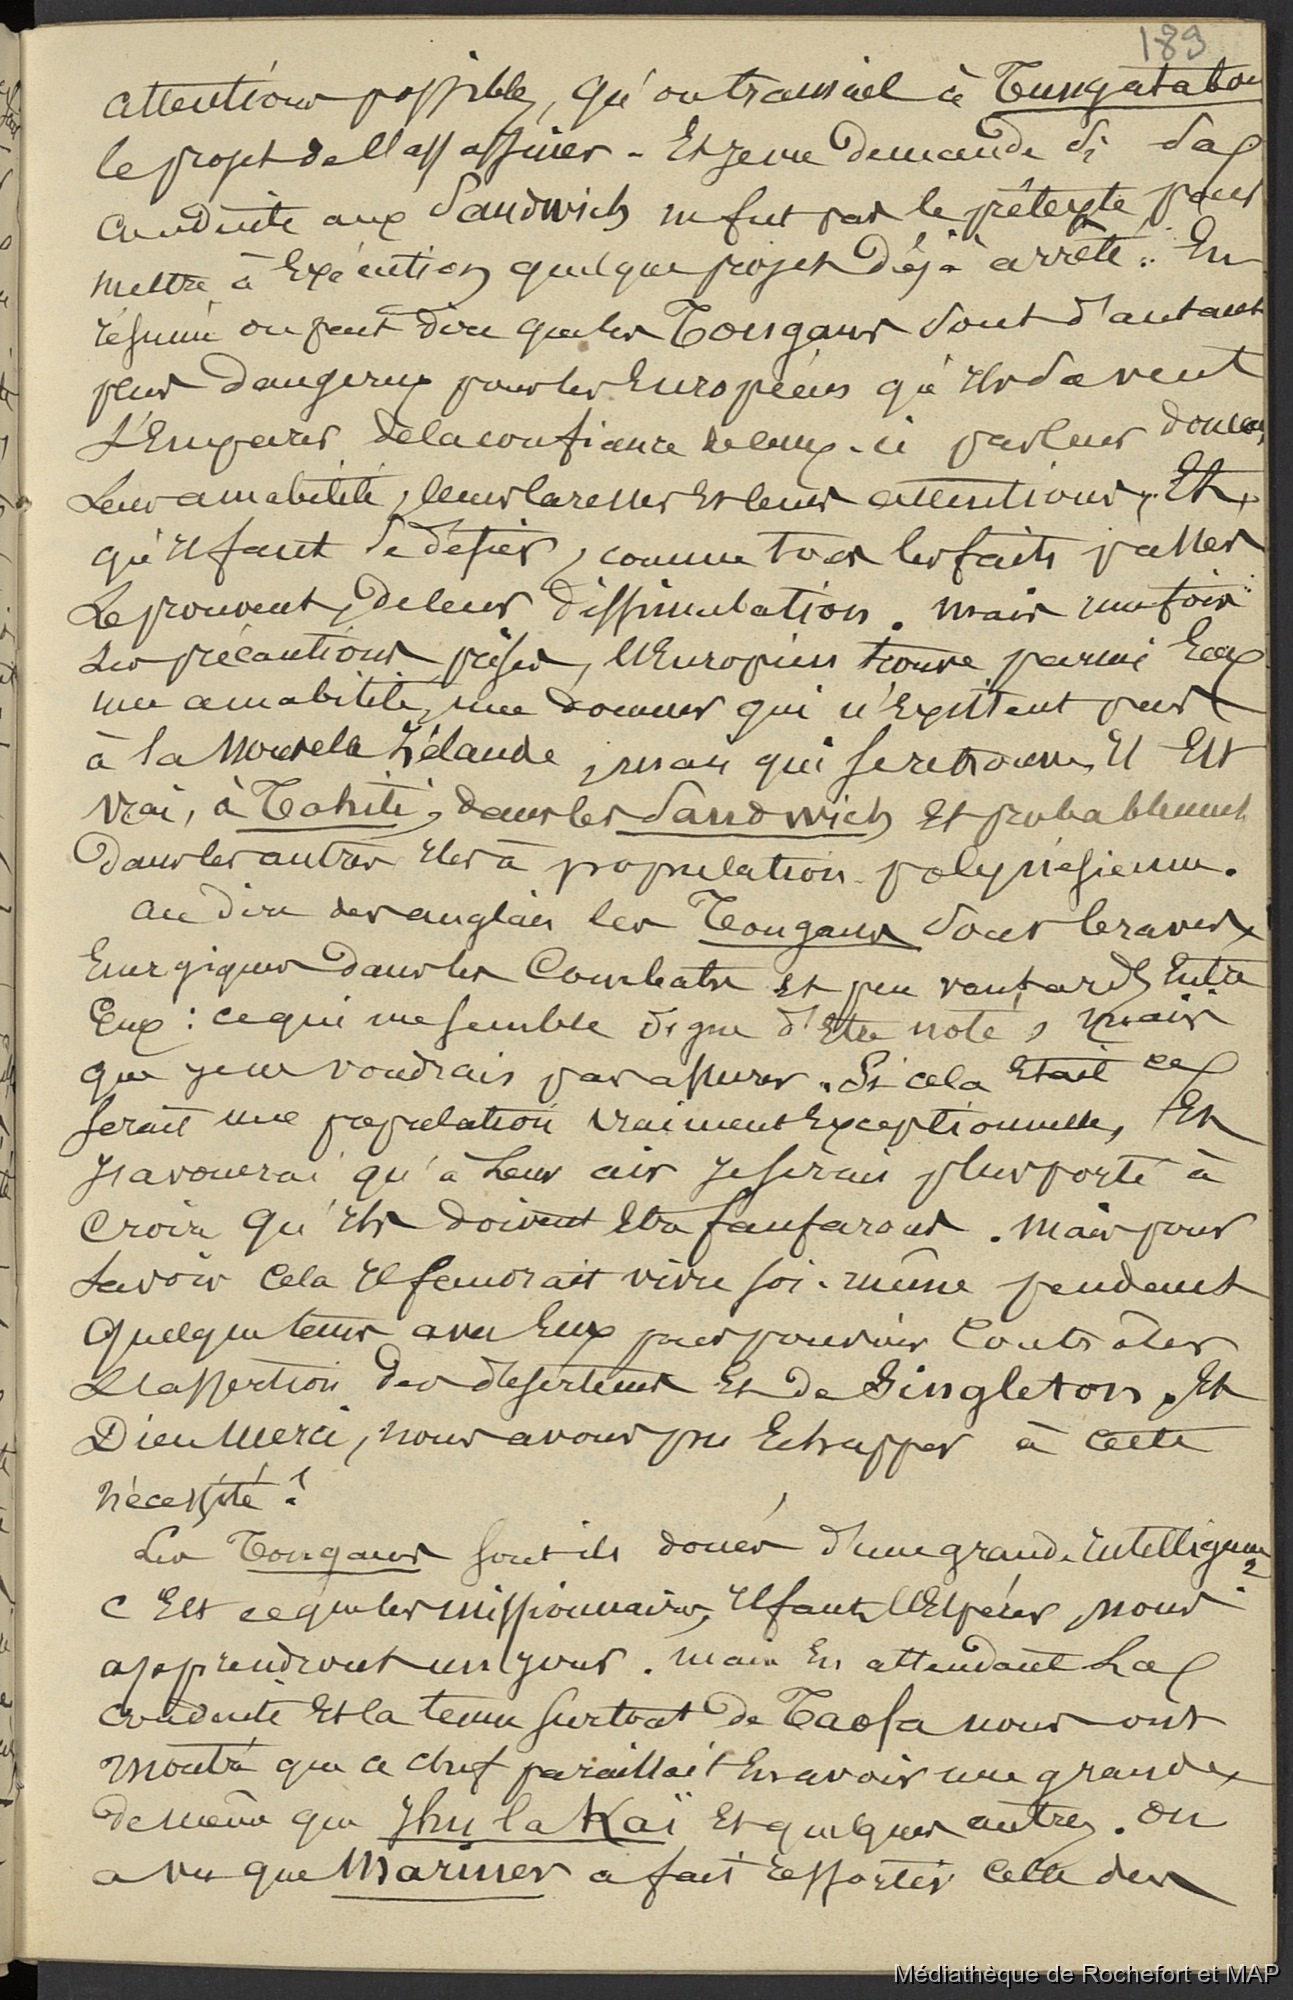 189
attentions possibles, qu'on tramait à Tungatabou
le projet de l'assassiner - Et je me demande si sa
conduite aux Sandwich ne fut pas le prétexte pour
mettre à Exécution quelque projet déjà arrêté. En
résumé on peut dire que les Tongans sont d'autant
plus dangereux pour les Européens qu'ils savent
s'Emparer de la confiance de ceux-ci par leur douceur,
Leur amabilité, leurs caresses et leurs attentions, Et
qu'il faut se défier, comme tous les faits passés
Le prouvent, de leur dissimulation. Mais une fois
Les précautions prises, l'Européen trouve parmi Eux
une amabilité, une douceur qui n'Existent pas
à la Nouvelle Zélande, mais qui se retrouvent, il Est
vrai, à Tahiti, dans les Sandwich et probablement
Dans les autres iles à population polynésienne.
Au dire des anglais les Tongans sont braves,
Energiques dans les Combats et peu vantards Entre
Eux : ce qui me semble digne d'Etre noté, mais
que je ne voudrais pas assurer. Si cela Etait ce
serait une population vraiment Exceptionnelle, Et
j'avouerai qu'à Leur air je serais plus porté à
Croire qu'ils doivent Etre fanfarons. Mais pour
Savoir Cela il faudrait vivre soi-même pendant
Quelque tems avec Eux pour pouvoir Contrôler
L'assertion des déserteurs Et de Singleton, Et
Dieu Merci, nous avons pu Echapper à Cette
nécessité !
Les Tongans sont ils doués d'une grande intelligence ?
C'Est ce que les missionnaires, il faut l'Espérer, nous
apprendront un jour. Mais En attendant La
conduite Et la tenue surtout de Taofa nous ont
montré que ce chef paraissait En avoir une grande
De même que Jhu la Kaï Et quelques autres. On
a vu que Mariner a fait ressortir Celle des
Médiathèque de Rochefort et MAP